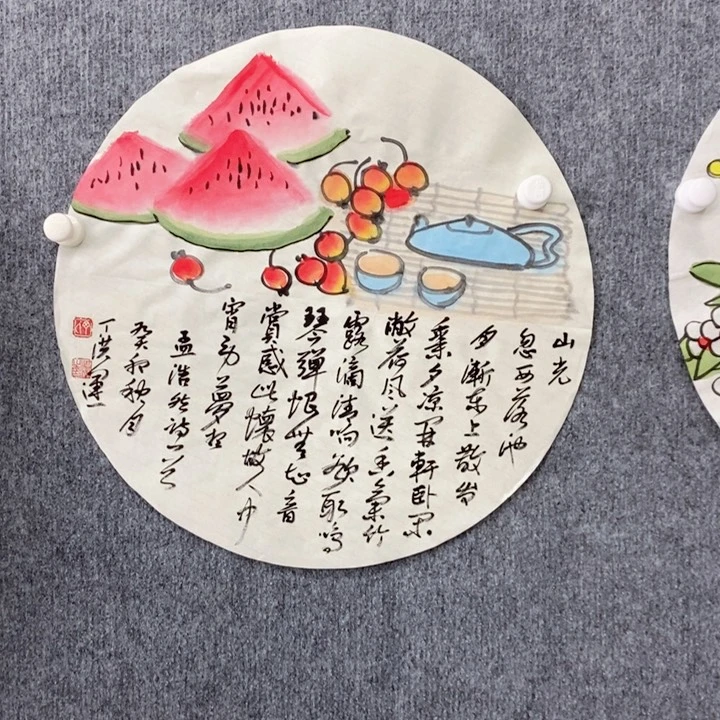 山光
忽西落池
月漸东上散发
乘夕凉開軒卧闲
敞荷风送香氣竹
露滴清响欲取鸣
琴彈恨無知音
賞感此懷故人中
宵劳夢想
孟浩然诗一首
癸卯秋月
丁洪